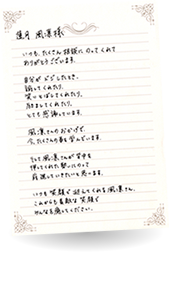 蓮月 風凛様
いつも、たくさん相談にのってくれて
ありがとうございます。
自分がどうしたとき、
話してくれたり、
笑ってくれたり、
励ましてくれたり、
とても感謝しています。
風凛さんのおかげで
今、たくさんの事を学んでいます。
そして風凛さんが背中を
押してくれた勢いにのって
前進していきたいと思います。
いつも笑顔で
くれる風凛さん、
これからも素敵な笑顔で
みんなを癒してください。